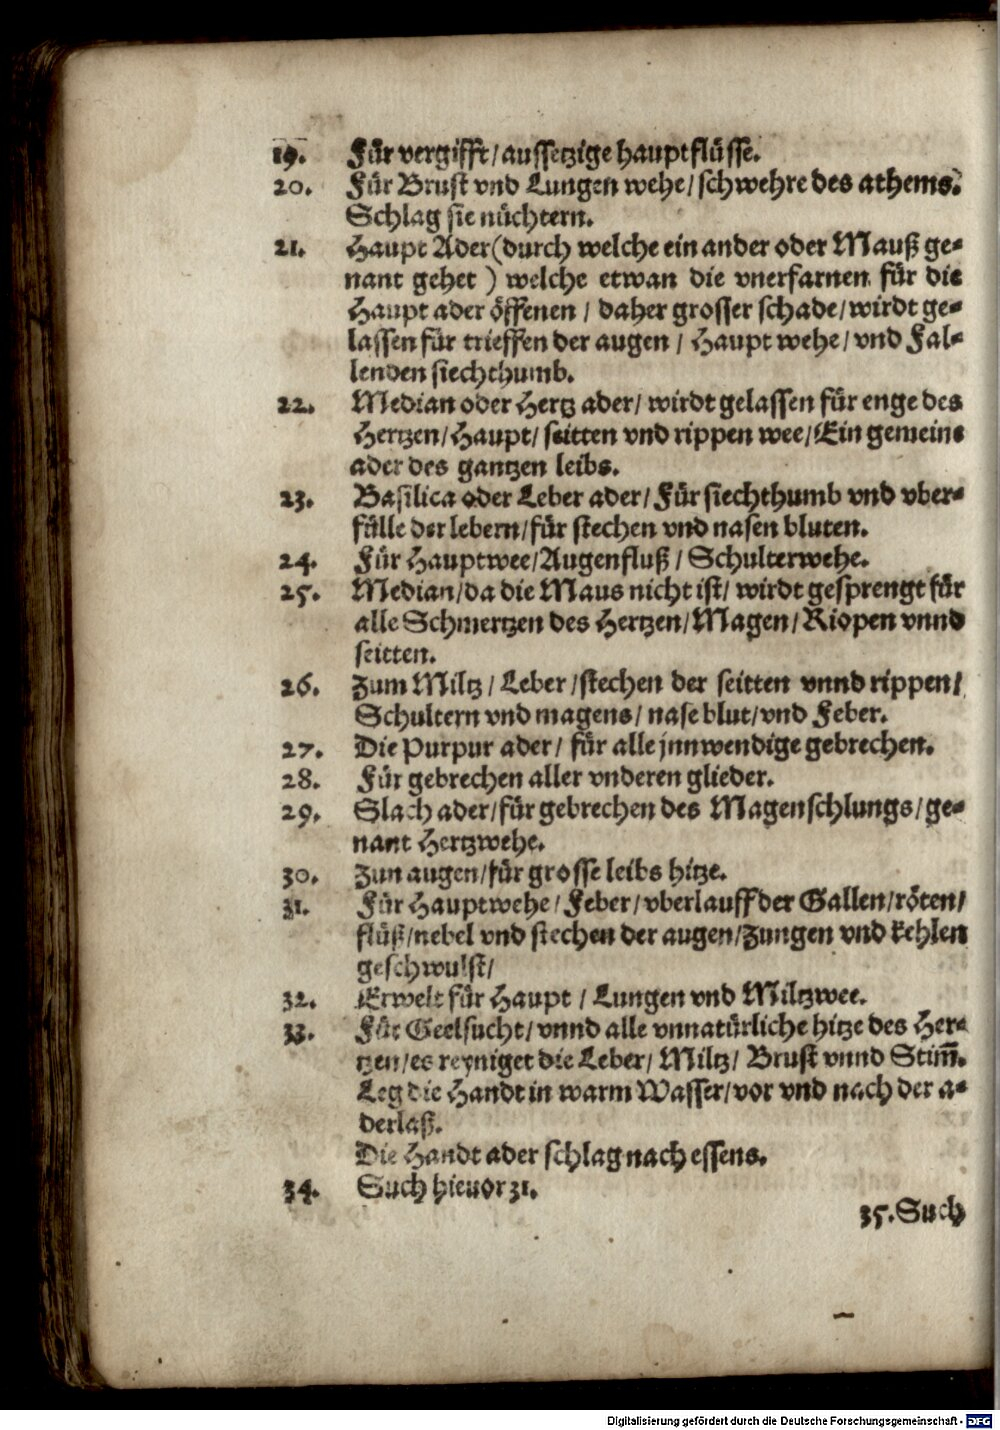 19. Für vergifft/aussetzige hauptflüsse.
20. Für Brust vnd Lungen wehe/schwehre des athems.
Schlag sie nüchtern.
21. Haupt Ader(durch welche ein ander oder Mauß ge-
nant gehet ) welche etwan die vnerfarnen für die
Haupt ader öffenen / daher grosser schade/wirdt ge-
lassen für trieffen der augen / Haupt wehe/vnd Fal-
lenden siechthumb.
22. Median oder Hertz ader/ wirdt gelassen für enge des
Hertzen/Haupt/ seitten vnd rippen wee/Ein gemeine
ader des gantzen leibs.
23. Basilica oder Leber ader/Für siechthumb vnd vber-
fülle der lebern/für stechen vnd nasen bluten.
24. Für Hauptwee/Augenfluß / Schulterwehe.
25. Median/da die Maus nicht ist/ wirdt gesprengt für
alle Schmertzen des Hertzen/Magen/Riopen vnnd
seitten.
26. Zum Miltz / Leber /stechen der seitten vnnd rippen/
Schultern vnd magens/ nase blut/vnd Feber.
27. Die Purpur ader/ für alle jnnwendige gebrechen.
28. Für gebrechen aller vnderen glieder.
29. Slach ader/für gebrechen des Magenschlungs/ge-
nant Hertzwehe.
30. Zun augen/für grosse leibs hitze.
31. Für Hauptwehe/Feber/vberlauff der Gallen/röten/
flüß/nebel vnd stechen der augen/Zungen vnd kehlen
geschwulst/
32. Erwelt für Haupt / Lungen vnd Miltzwee.
33. Für Geelsucht/vnnd alle vnnatürliche hitze des Her-
tzen/es reyniget die Leber/ Miltz/ Brust vnnd Stim̄.
Leg die Handt in warm Wasser/vor vnd nach der a-
derlaß.
Die Handt ader schlag nach essens.
34. Such hieuor 31.
35. Such
Digitalisierung gefördert durch die Deutsche Forschungsgemeinschaft - DFG